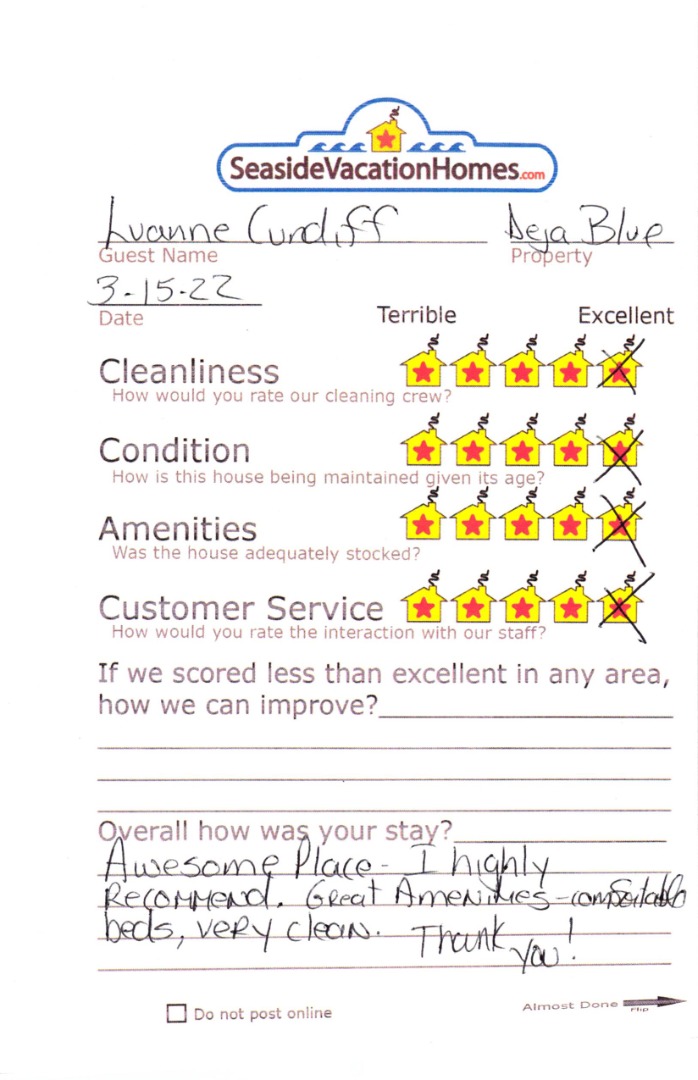 SeasideVacationHomes.com
Luanne Cundiff Deja Blue
Guest Name Property
3-15-22
Date Terrible Excellent
Cleanliness
How would you rate our cleaning crew?
Condition
How is this house being maintained given its age?
Amenities
Was the house adequately stocked?
Customer Service
How would you rate the interaction with our staff?
If we scored less than excellent in any area,
how we can improve?
Overall how was your stay?
Awesome Place - I highly
Recommend. Great Amenities - comfortable
beds, very clean. Thank
you!
Do not post online Almost Done
Flip